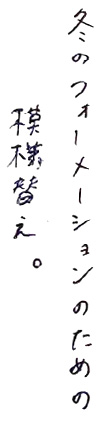 冬のフォーメーションのための
模様替え。